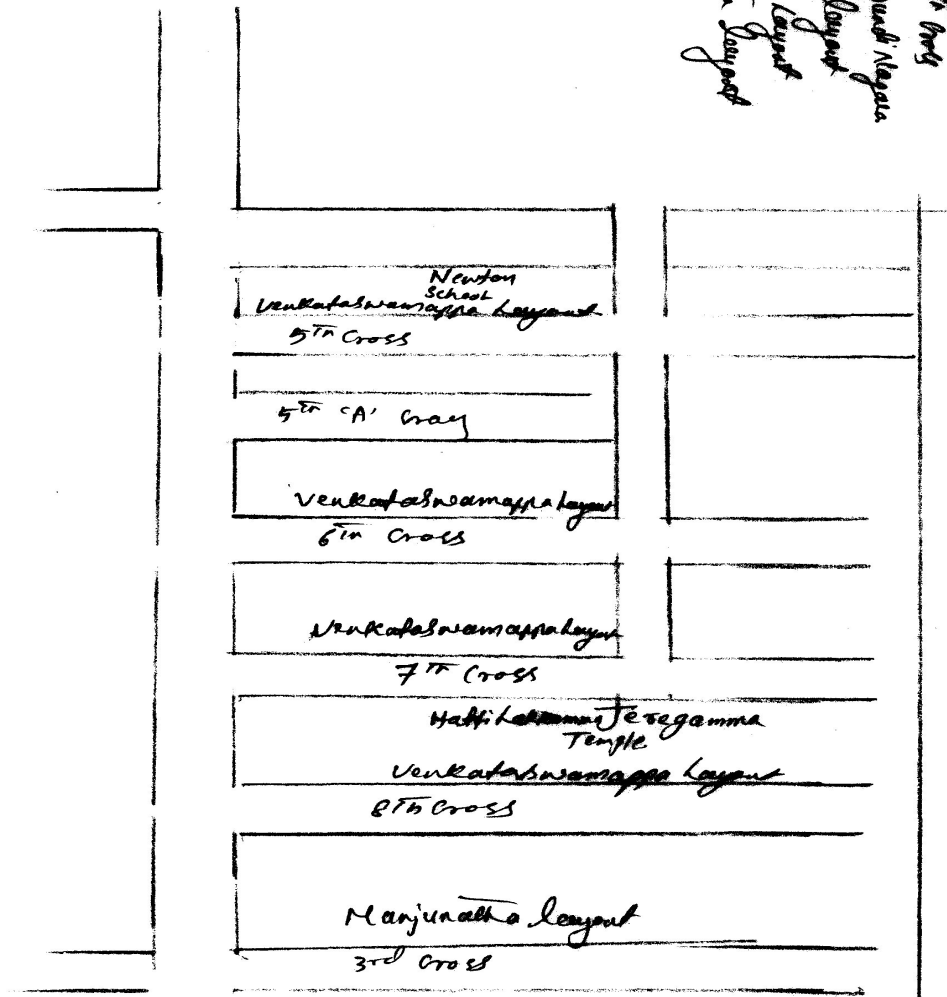 Cross
Nagara
Layout
Layout
Layout
Newton
School
Venkataswamappa Layout
5th Cross
5th 'A' Cross
Venkataswamappa Layout
6th Cross
Venkataswamappa Layout
7th Cross
Temple
Venkataswamappa Layout
8th Cross
Manjunatha Layout
3rd Cross